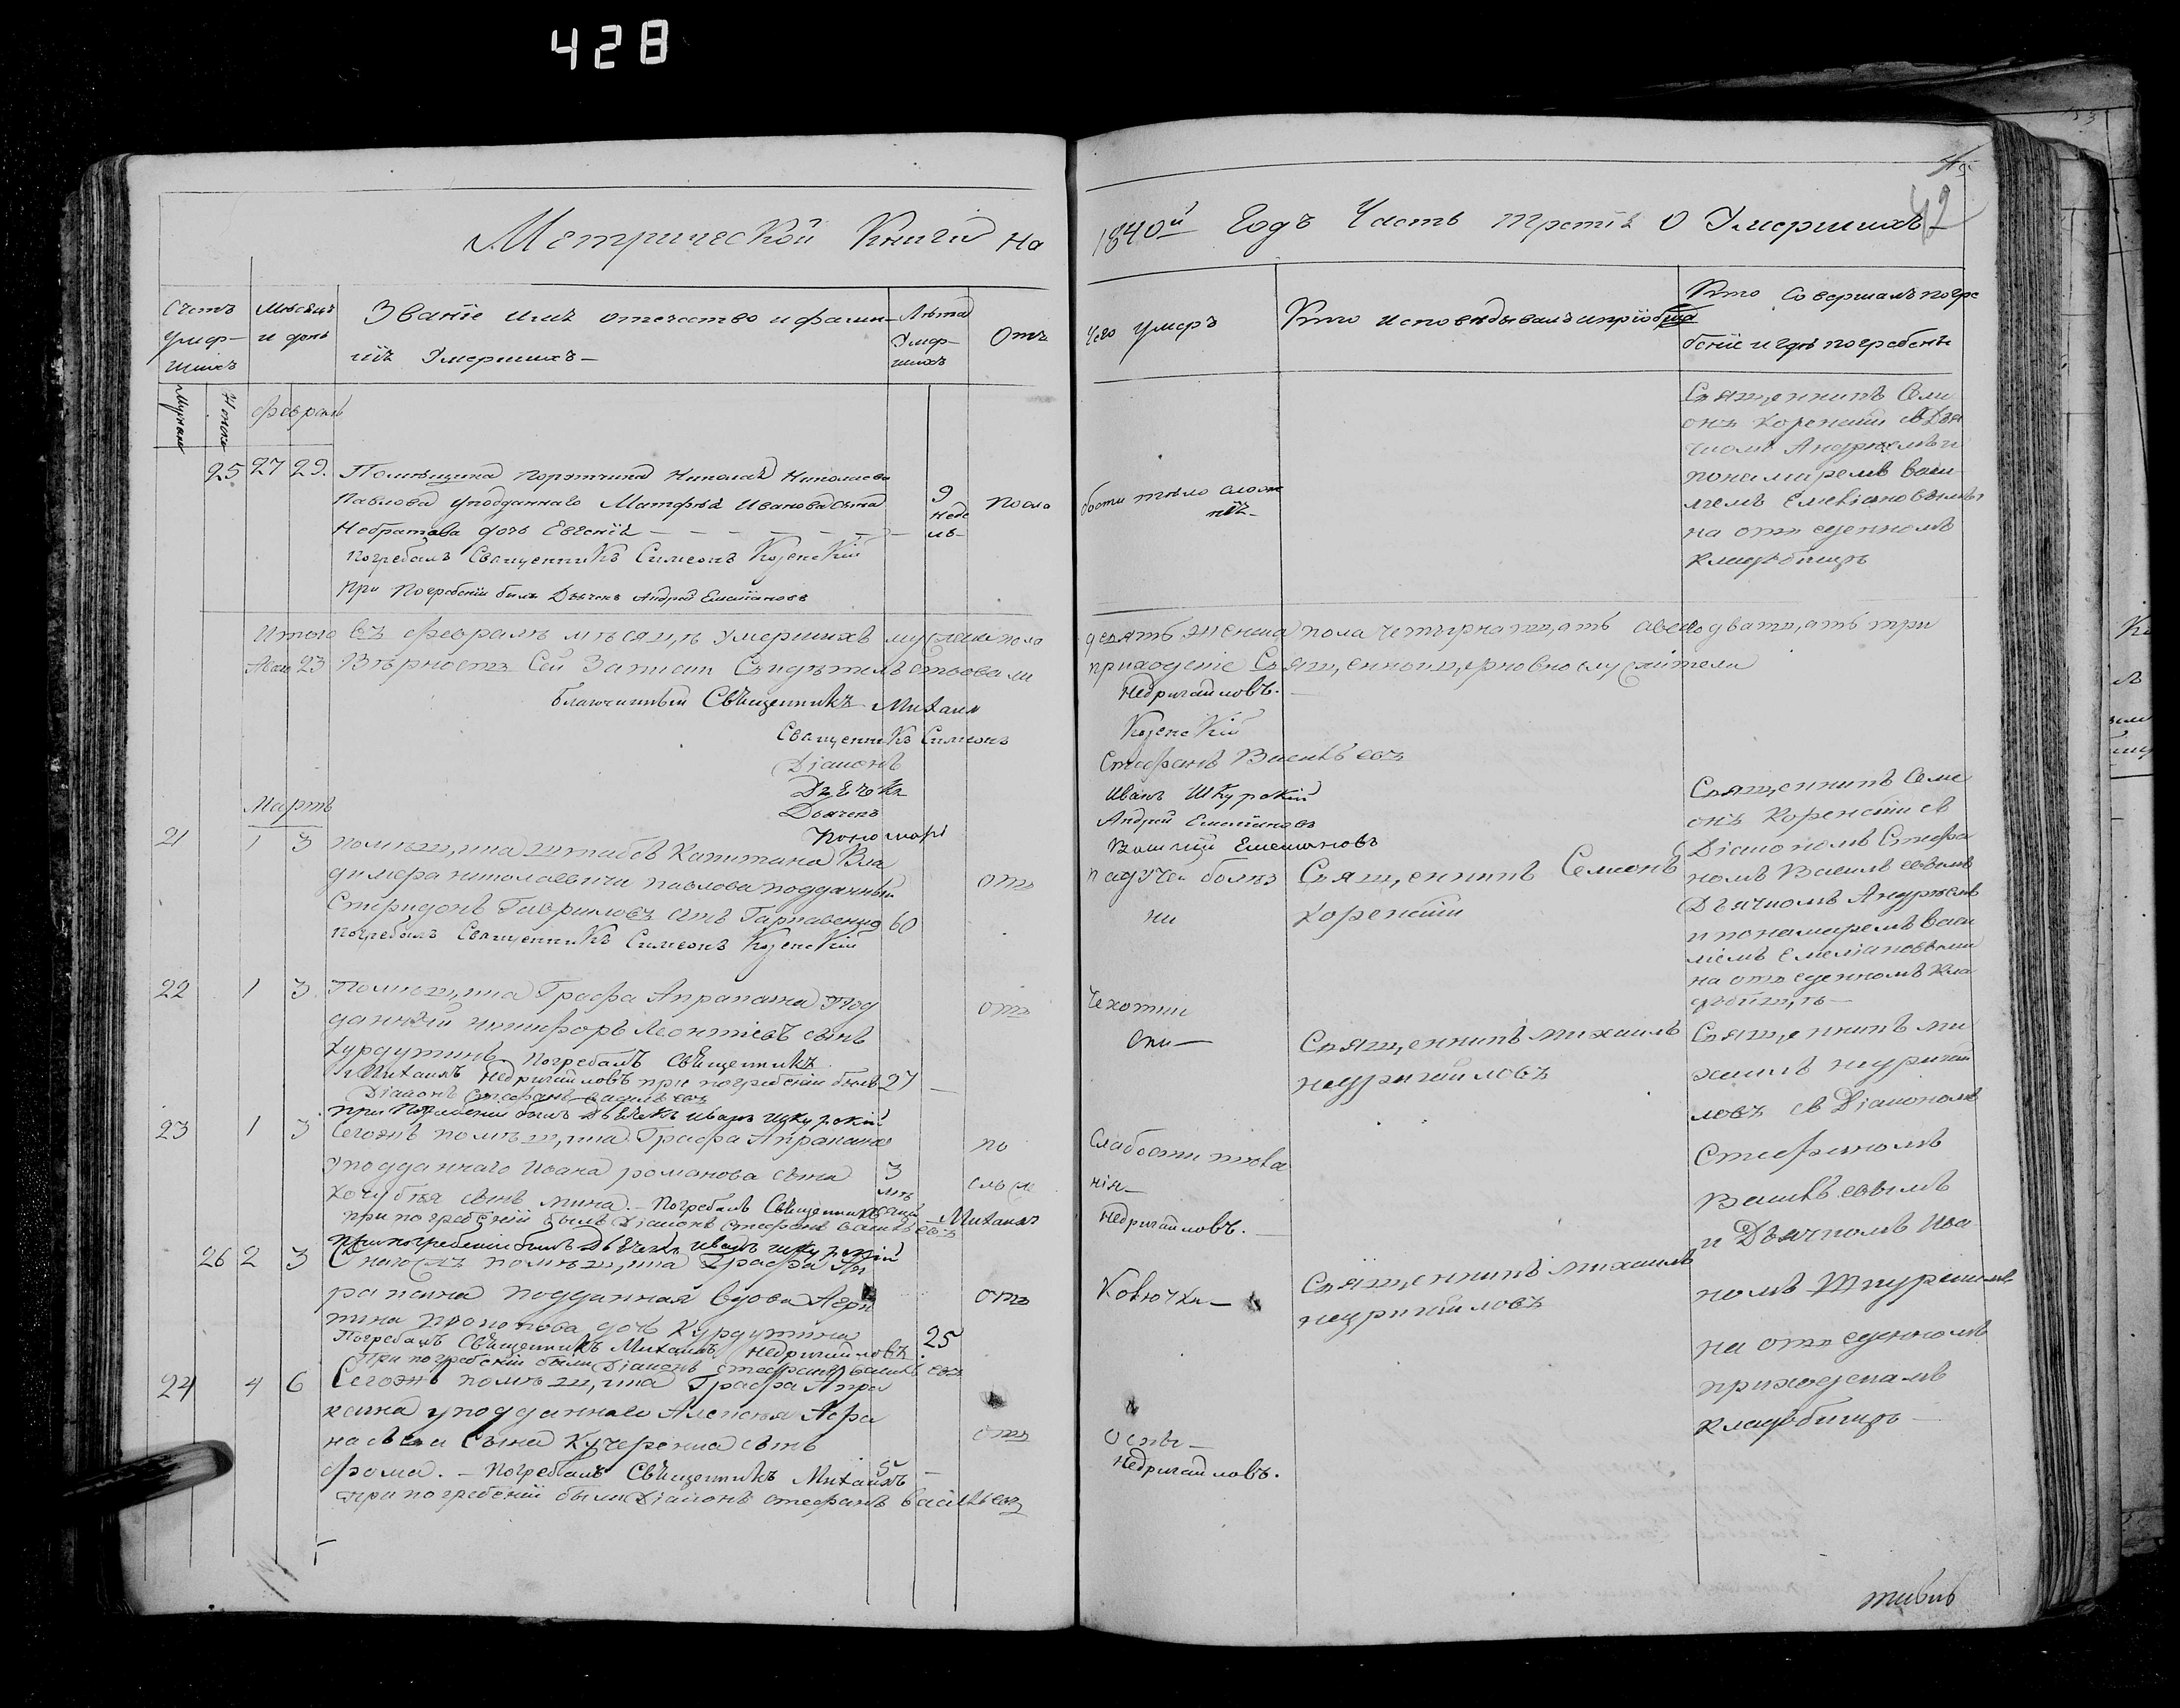 428
42
Метрической Книги на 1840й Годъ Часть третія О Умершихъ
Счетъ умер-шихъ
Мѣсяцъ и день
Званіе имя отечество и фами-
лія Умершихъ-
Лѣта Умер-шихъ
Отъ чего умеръ
Кто исповѣдывалъ и пріобща
Кто совершалъ погре
беніе и гдѣ погребенъ
Мужеска
Женска
февраль
25 27 29.
Помѣщика порэтчика Николая Николаева
Павлова уподданнаго Матфѣя Иванова сына
дочь Евгенія
9 неде ль-
погребалъ Священникъ Симеонъ Коренскій
при погребеніи былъ Дьячекъ Андрей Емелiановъ
Священникъ Сем
онъ Коренскій съ Дья
чкомъ Андреемъ и
понамаремъ Васи
лiемъ Емелiановыми
на отведенномъ
кладбищѣ
Итого въ февралѣ мѣсяцѣ умершихъ мужеска пола девять женска пола четырнатцать авсего дватцать три
23 Вѣрность сей Записи Свидѣтельствовали приходскіе Священноицерковнослужители
благочинный Священникъ Михаил Недригайловъ.-
Священникъ Симеонъ Коренскій
Діаконъ Стефанъ Васильевъ
Дьячекъ Иванъ Шкурскій
Дьячекъ Андрей Емелiановъ
Пономарь Василий Емельяновъ
Мартъ
21 1 3
помѣщика штабсъ Капитана Вла
димера николаевича павлова подданный
Спиридонъ Гавриловъ сынъ 60
погребалъ Священникъ Симеонъ Коренскій
отъ падучей болѣз
ни
Священникъ Семеонъ
Коренскій
Священникъ Семе
онъ Коренскій съ
Діакономъ Стефа
номъ Васильевымъ
Дьячкомъ Андреемъ
и понамаремъ Васи
лiемъ Емелiановыми
на отведенномъ кла
дбищѣ-
22 1 3
Помѣщика Графа Апраксина под
данный никифоръ Леонтіевъ сынъ
Курдутинъ погребалъ Священникъ
Михаилъ Недригайловъ при погребеніи былъ 27
Діаконъ Стефанъ Васильевъ
при погребеніи былъ Дьячекъ Иванъ Шкурскій
отъ Чехотки
Священникъ михаилъ
недригайловъ
Священникъ ми
хаилъ недригай
ловъ съ Діакономъ
Стефаномъ
Васильевымъ
и Дьячкомъ Ива
номъ Шкурскимъ
на отведенномъ
приходскомъ
кладбищѣ-
23 1 3
Сегожъ помѣщика Графа Апраксина
уподданнаго Ивана романова сына 3
сынъ мина.- погребалъ Священникъ Михаилъ Недригайловъ.
при погребеніи былъ Діаконъ Стефанъ Васильевъ
при погребеніи былъ Дьячекъ Иванъ Шкурскій
по слабости
26 2 3
Оногожъ помѣщика Графа Ап
раксина подданная вдова Агри
пина дочь Курдутина 25
Погребалъ Священникъ Михаилъ Недригайловъ.
при погребеніи были Діаконъ Стефанъ Васильевъ
отъ
Священникъ михаилъ
недригайловъ
24 4 6
Сегожъ помѣщика Графа Апра
ксина уподданнаго Алексея Афа
насьева сына Кучеренка сынъ
фома.- погребалъ Священникъ Михаилъ Недригайловъ.
5
при погребеніи были Діаконъ Стефанъ Васильевъ
отъ Оспы-